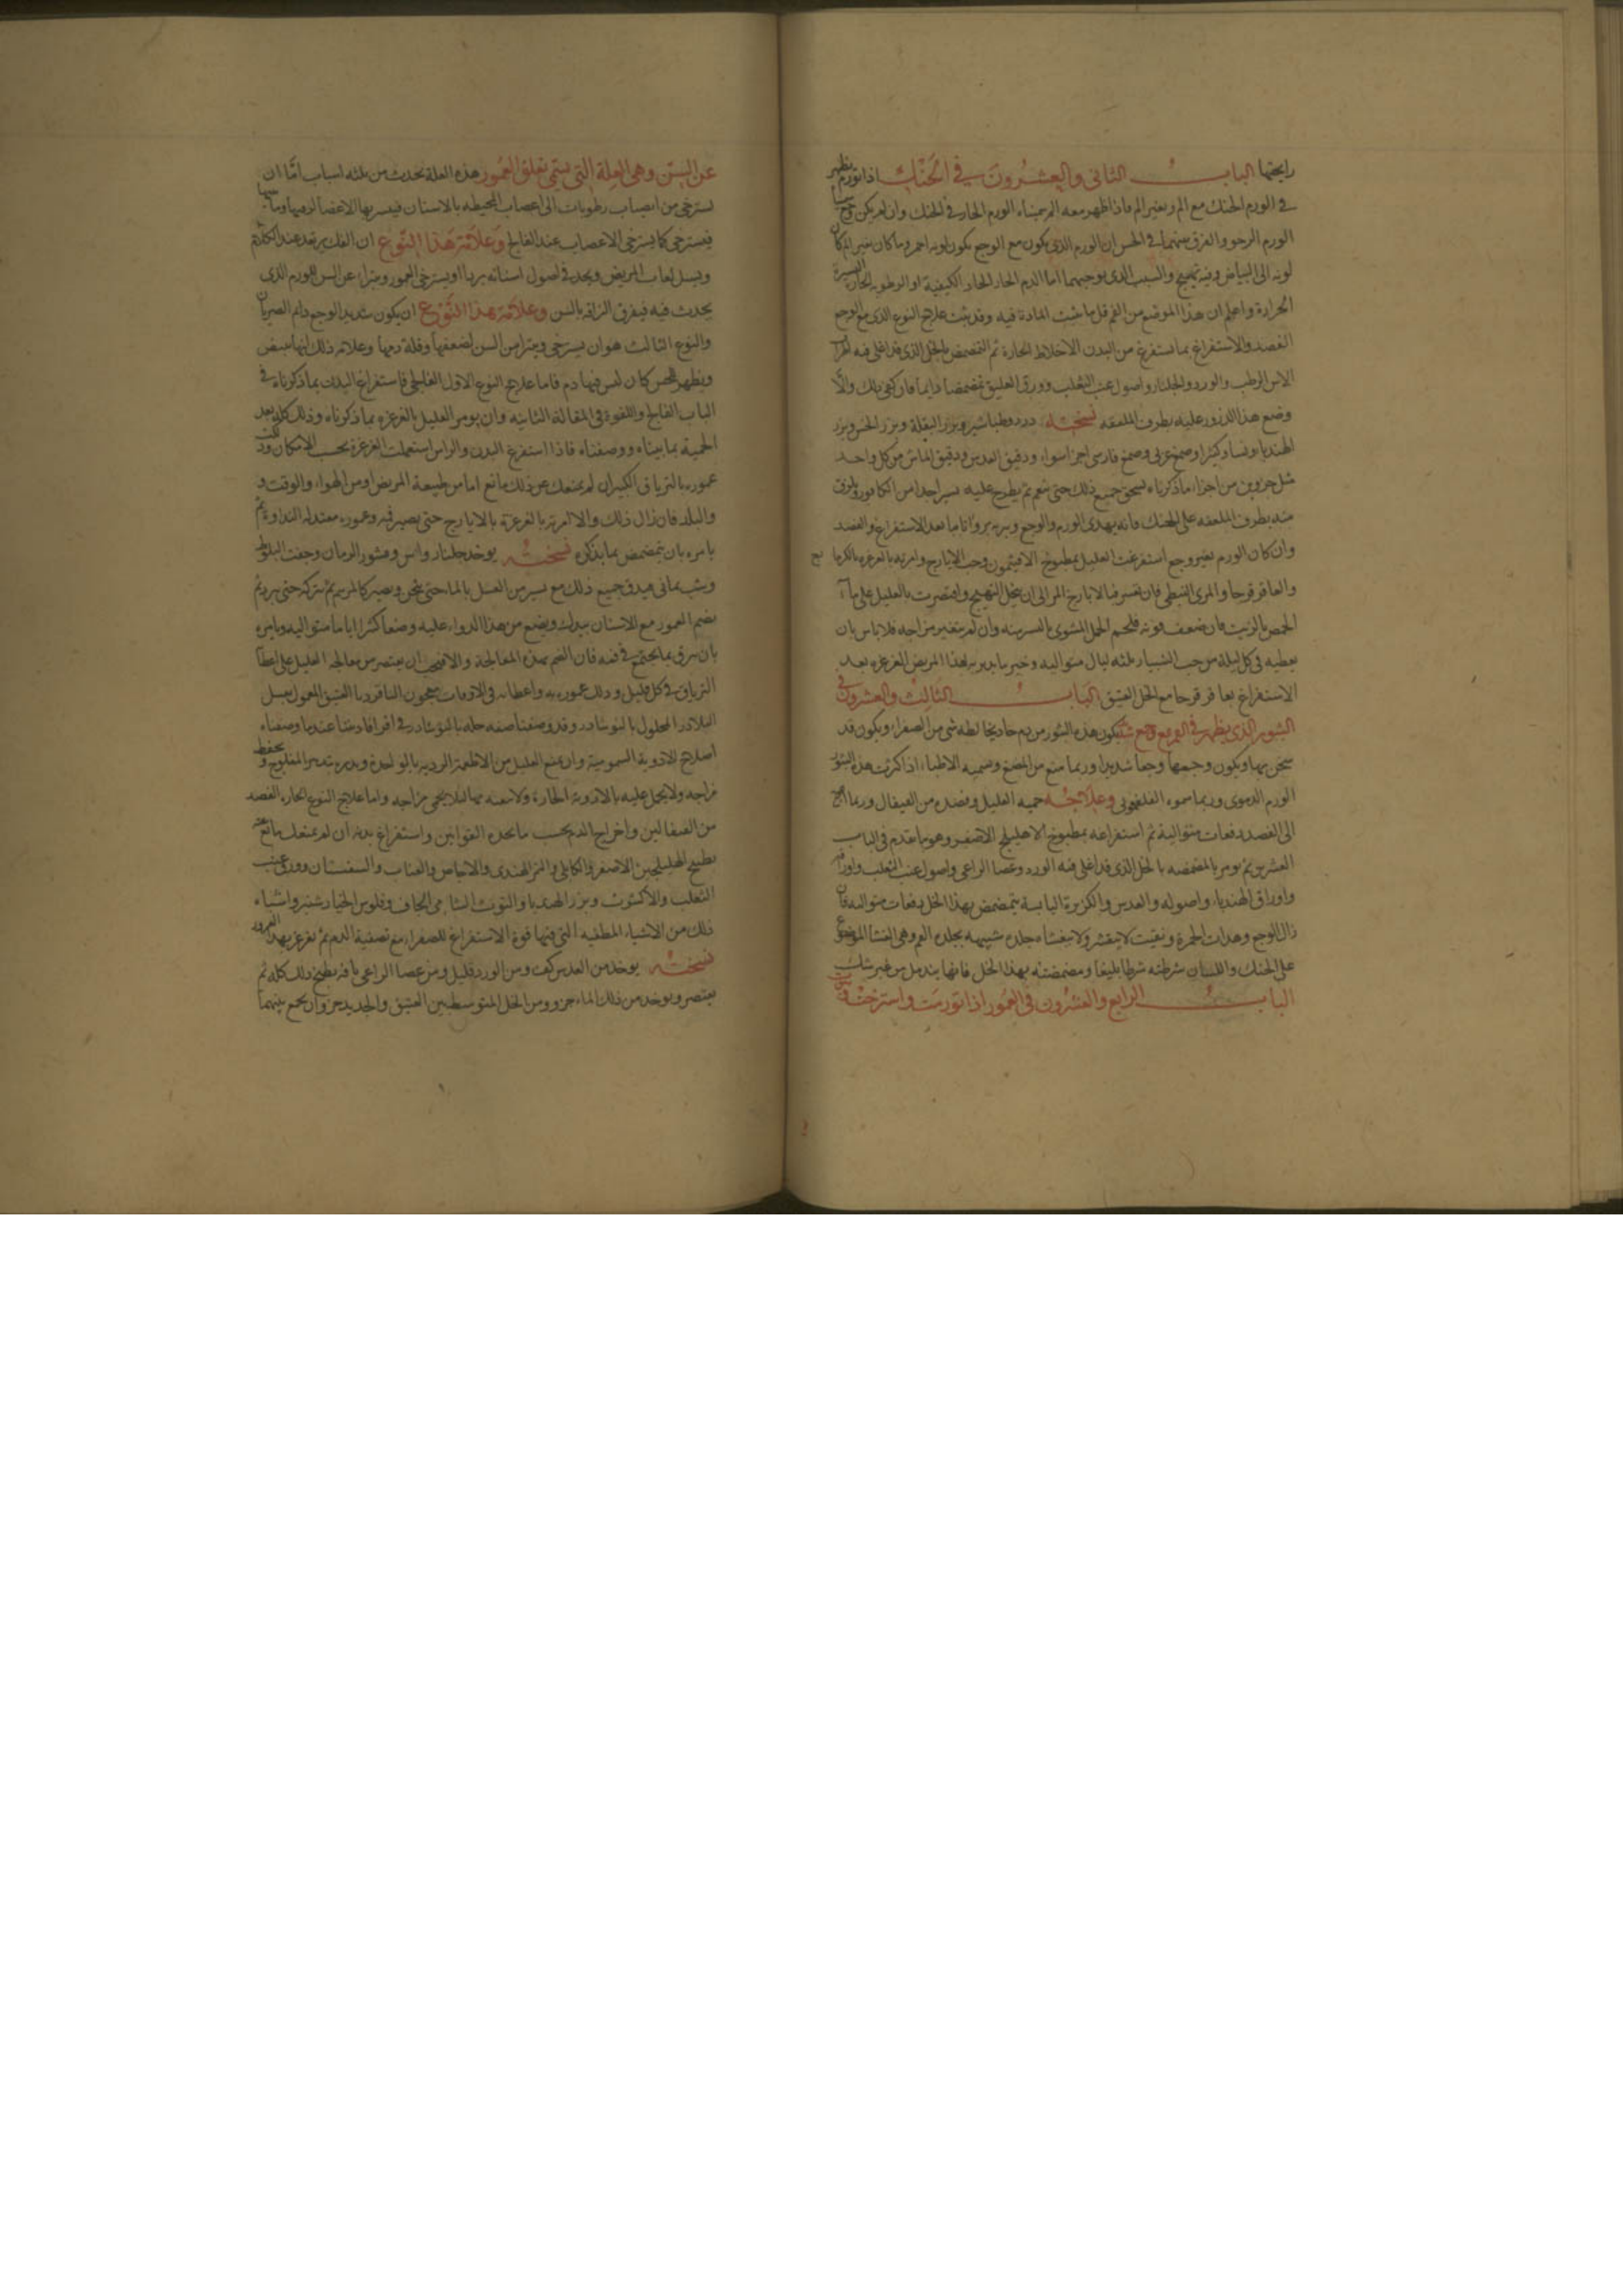 رايحتها الباب الثانى والعشرون في الحنك اذا تورم يظهر
في الورم الحنك مع الم وبغير الم فاذا ظهر معه الم سميناه الورم الحار في الحنك وان لم يكن وجع
الورم الرخو والفرق بينهما في الحس ان الورم الذى يكون مع الوجع يكون لونه احمر وما كان بغير الم كان
لونه الى البياض وفيه تهيج والسبب الذى يوجبهما اما الدم الحار الحاد الكيفية او الرطوبه اليسيرة
الحرارة واعلم ان هذا الموضع من الفم قل ما تثبت المادة فيه وقد يثبت علاج النوع الذى مع الوجع
الفصد والاستفراغ بما يستفرغ من البدن الاخلاط الحارة ثم التمضمض بالخل الذى قد اغلى فيه
الاس الرطب والورد والجلنار واصول عنب الثعلب وورق العليق تمضمضا دايما فان كفى ذلك والا
وضع هذا الذرور عليه بطرف الملعقه نسخته ورد وطباشير وبزر البقلة وبزر الخس وبزر
الهندبا ونشا وكثيرا وصمغ عربى وصمغ فارسى اجزا سواء ودقيق العدس ودقيق الماش من كل واحد
مثل جزوين من اجزاء ما ذكرناه يسحق جميع ذلك حتى ينعم ثم يطرح عليه يسير جدا من الكافور ويلزق
منه بطرف الملعقه على الحنك فانه يهدى الورم والوجع ويبريه بروا تاما بعد الاستفراغ والفصد
وان كان الورم بغير وجع استفرغت العليل بمطبوخ الافيثمون وحب الايارج وامرته بالغرغره
والعاقر قرحا والمرى النبطى فان تغرغر بالايارج المر الى ان ينحل التهيج واقتصرت بالعليل على ماء
الحمص بالزيت فان ضعف قوته فلحم الحمل المشوى باليسير منه وان لم يتغير مزاجه فلا باس بان
يعطيه فى كل ليلة من حب الشبيار ثلثه ليال متواليه وخير ما يدبر به لهذا المريض الغرغره بعد
الاستفراغ بعاقر قرحا مع الخل العتيق الباب الثالث والعشرون في
البثور الذى يظهر في الفم مع وجع شديد يكون هذه البثور من دم حاد يخالطه شى من الصفراء ويكون قد
سخن بها ويكون وجعها وجعا شديدا وربما منع من المضغ ويسميه الاطباء اذا كثرت هذه البثور
الورم الدموى وربما سموه الفلغمونى وعلاجه حميه العليل وفصده من القيفال وربما احتيج
الى الفصد دفعات متوالية ثم استفراغه بمطبوخ الاهليلج الاصفر وهو ما تقدم فى الباب
العشرين ثم يومر بالمضمضه بالخل الذى قد اغلى فيه الورد وعصا الراعى واصول عنب الثعلب واوراقه
واوراق الهندباء واصوله والعدس والكزبرة اليابسة يتمضمض بهذا الخل دفعات متواليه فان
زال الوجع وهدات الحمرة وبقيت لا يتقشر ولا ينغشاه جلده شبيهه بجلدة الفم وهى الغشا الموضوع
على الحنك واللسان شرطته شرطا بليغا ومضمضته بهذا الخل فانها يندمل من غير شك
الباب الرابع والعشرون فى العمور اذا تورمت واسترخت
عن السن وهى العلة التى يسمى تعلق العمور هذه العلة تحدث من ثلثه اسباب اما ان
يسترخى من انصباب رطوبات الى اعصاب المحيطه بالاسنان فيشربها الاعضا لزمها وماسها
فيسترخى كما يسترخى الاعصاب عند الفالج وعلامة هذا النوع ان الفك يرتعد عند الكلام
ويسيل لعاب المريض ويجد في اصول اسنانه بردا او يسترخى العمور ويتبرا عن السن للورم الذى
يحدث فيه فيفرق التزاقه بالسن وعلامة هذا النوع ان يكون شديد الوجع دايم الضربان
والنوع الثالث هو ان يسترخى ويتبرا من السن لضعفها وقلة دمها وعلامه ذلك انها تبيض
ويظهر للحس كان ليس فيها دم فاما علاج النوع الاول الفالجى فاستفراغ البدن بما ذكرناه في
الباب الفالج واللقوة فى المقالة الثانيه وان يومر العليل بالغرغره بما ذكرناه وذلك كله بعد
الحميه بما بيناه ووصفناه فاذا استفرغ البدن والراس استعملت الغرغره بحسب الامكان ودلكت
عموره بالترياق الكبير ان لم يمنعك عن ذلك مانع اما من طبيعة المريض او من الهواء والوقت و
والبلد فان زال ذلك والا امرته بالغرغرة بالايارج حتى يصير فيه وعموره معتدله النداوة ثم
يامره بان يتمضمض بما نذكره نسخته يوخذ جلنار واس وقشور الرمان وجفت البلوط
وشب يمانى يدق جميع ذلك مع يسير من العسل بالماء حتى يثخن ويصير كالمرهم ثم تتركه حتى يبرد ثم
يضم العمور مع الاسنان بيدك ويضع من هذا الدواء عليه وضعا كثيرا اياما متواليه ويامره
بان يرق بما يجتمع في فمه فان التحم بهذه المعالجة والا فيجب ان يقتصر من معالجه العليل على اعطا
الترياق في كل قليل ودلك عموره به واعطائه فى الاوقات معجون البلاذر العتيق المعمول بعسل
البلاذر المحلول بالنوشادر وقد وصفنا صفه حله بالنوشادر في اقرابادينا عند ما وصفناه
اصلاح الادوية السمومية وان يمنع العليل من الاطعمة الرديه بالواحدة ويدبره بتدبير المفلوج ويحفظ
مزاجه ولا يحمل عليه بالادوية الحارة ولا يمنعه منها ليلا يحمى مزاجه واما علاج النوع الحار، الفصد
من القيفالين واخراج الدم بحسب ما تحده القوانين واستفراغ بدنه ان لم يمنعك مانع عنه
بطبيخ الهليلجين الاصفر والكابلى والتمر الهندى والاجاص والعناب والسفستان وورق عنب
الثعلب والاكشوث وبزر الهندبا والتوث الشامى الجاف وفلوس الخيار شنبر واشباه
ذلك من الاشياء المطفيه التى فيها قوة الاستفراغ للصفراء مع تصفية الدم ثم يغرغر بهذا الغرور
نسخته يوخذ من العدس كف ومن الورد قليل ومن عصا الراعى باقه يطبخ ذلك كله ثم
يعتصر ويوخذ من ذلك الماء جزو ومن الخل المتوسط بين العتيق والجديد جزو ان يجمع بينهما